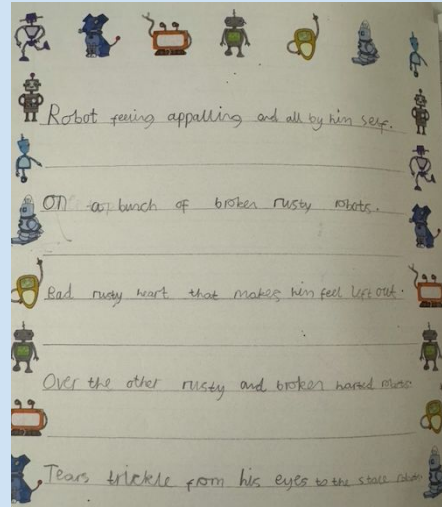 Robot feeling appalling and all by him self.
On a bunch of broken rusty robots.
Bad rusty heart that makes him feel left out.
Over the other rusty and broken harted
Tears trickle from his eyes to the